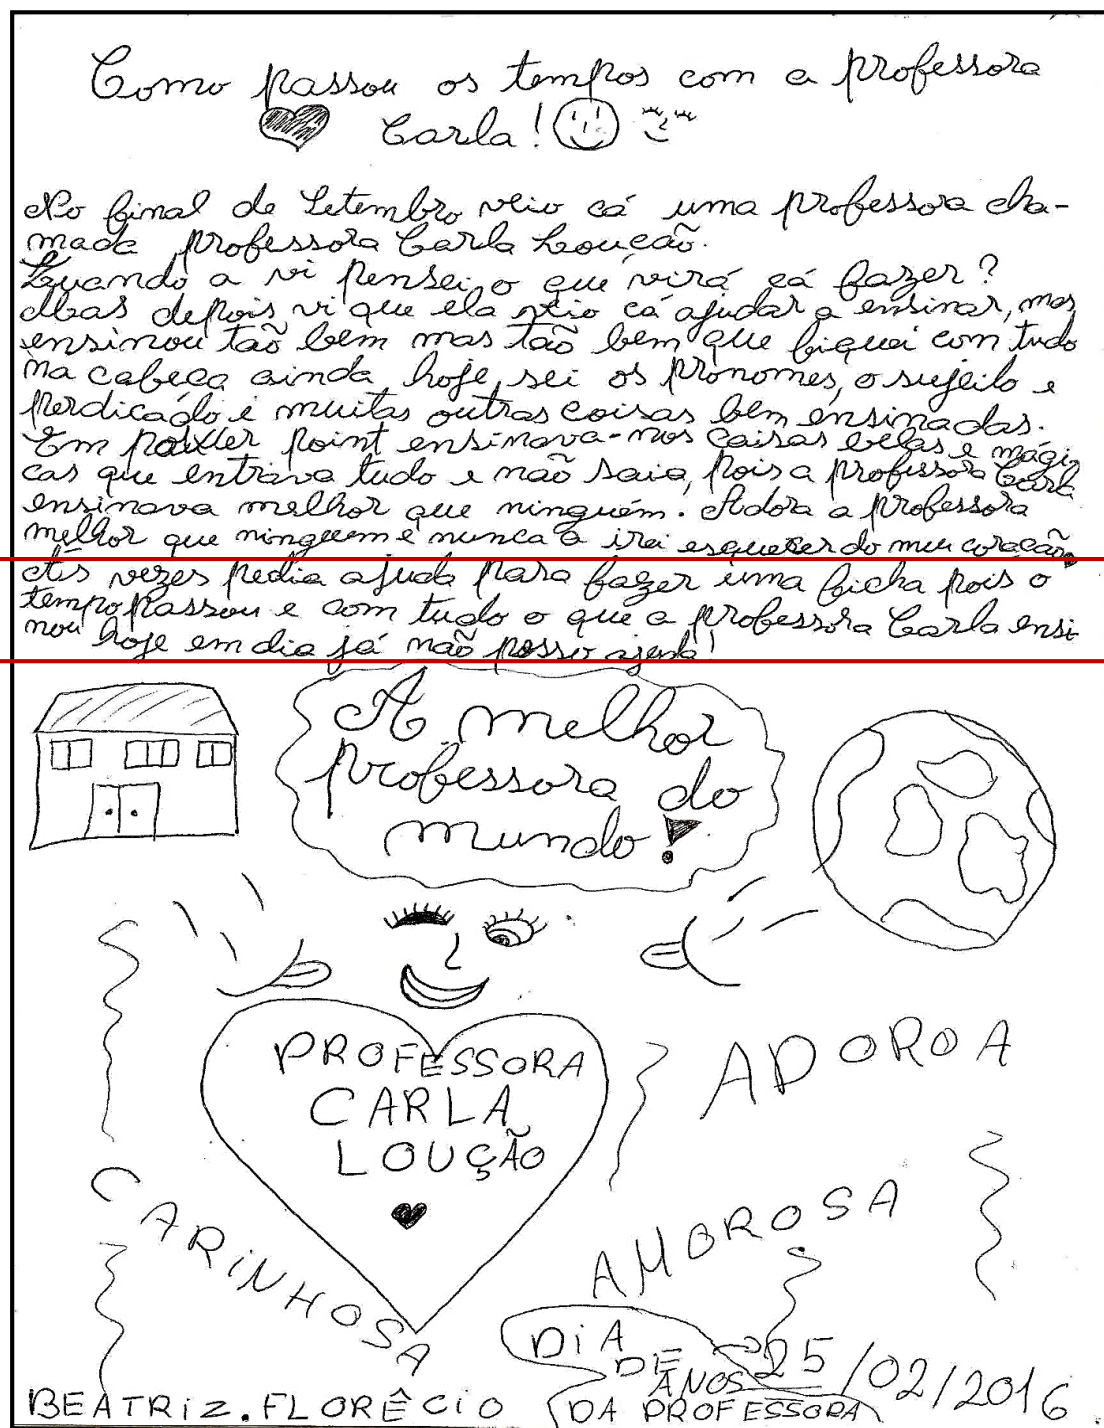 Como passou os tempos com a professora
Carla!
No final de Setembro veio cá uma professora cha-
mada professora Carla Loução.
Quando a vi pensei, o que virá cá fazer?
Mas depois vi que ela veio cá ajudar a ensinar, mas
ensinou tão bem mas tão bem que fiquei com tudo
na cabeça ainda hoje, sei os pronomes, o sujeito e
perdicado e muitas outras coisas bem ensinadas.
Em power point ensinava-nos coisas belas e mági
cas que entrava tudo e não saia, pois a professora Carla
ensinava melhor que ninguém. Adora a professora
melhor que ninguem e nunca a irei esquecer do meu coração.
Às vezes pedia ajuda para fazer uma ficha pois o
tempo passou e com tudo o que a professora Carla ensi
nou hoje em dia já não posso ajuda!
A melhor
professora do
mundo!
PROFESSORA
CARLA
LOUÇÃO
ADOROA
CARINHOSA
AMOROSA
DIA
DE
ANOS
DA PROFESSORA
25/02/2016
BEATRIZ. FLORÊCIO